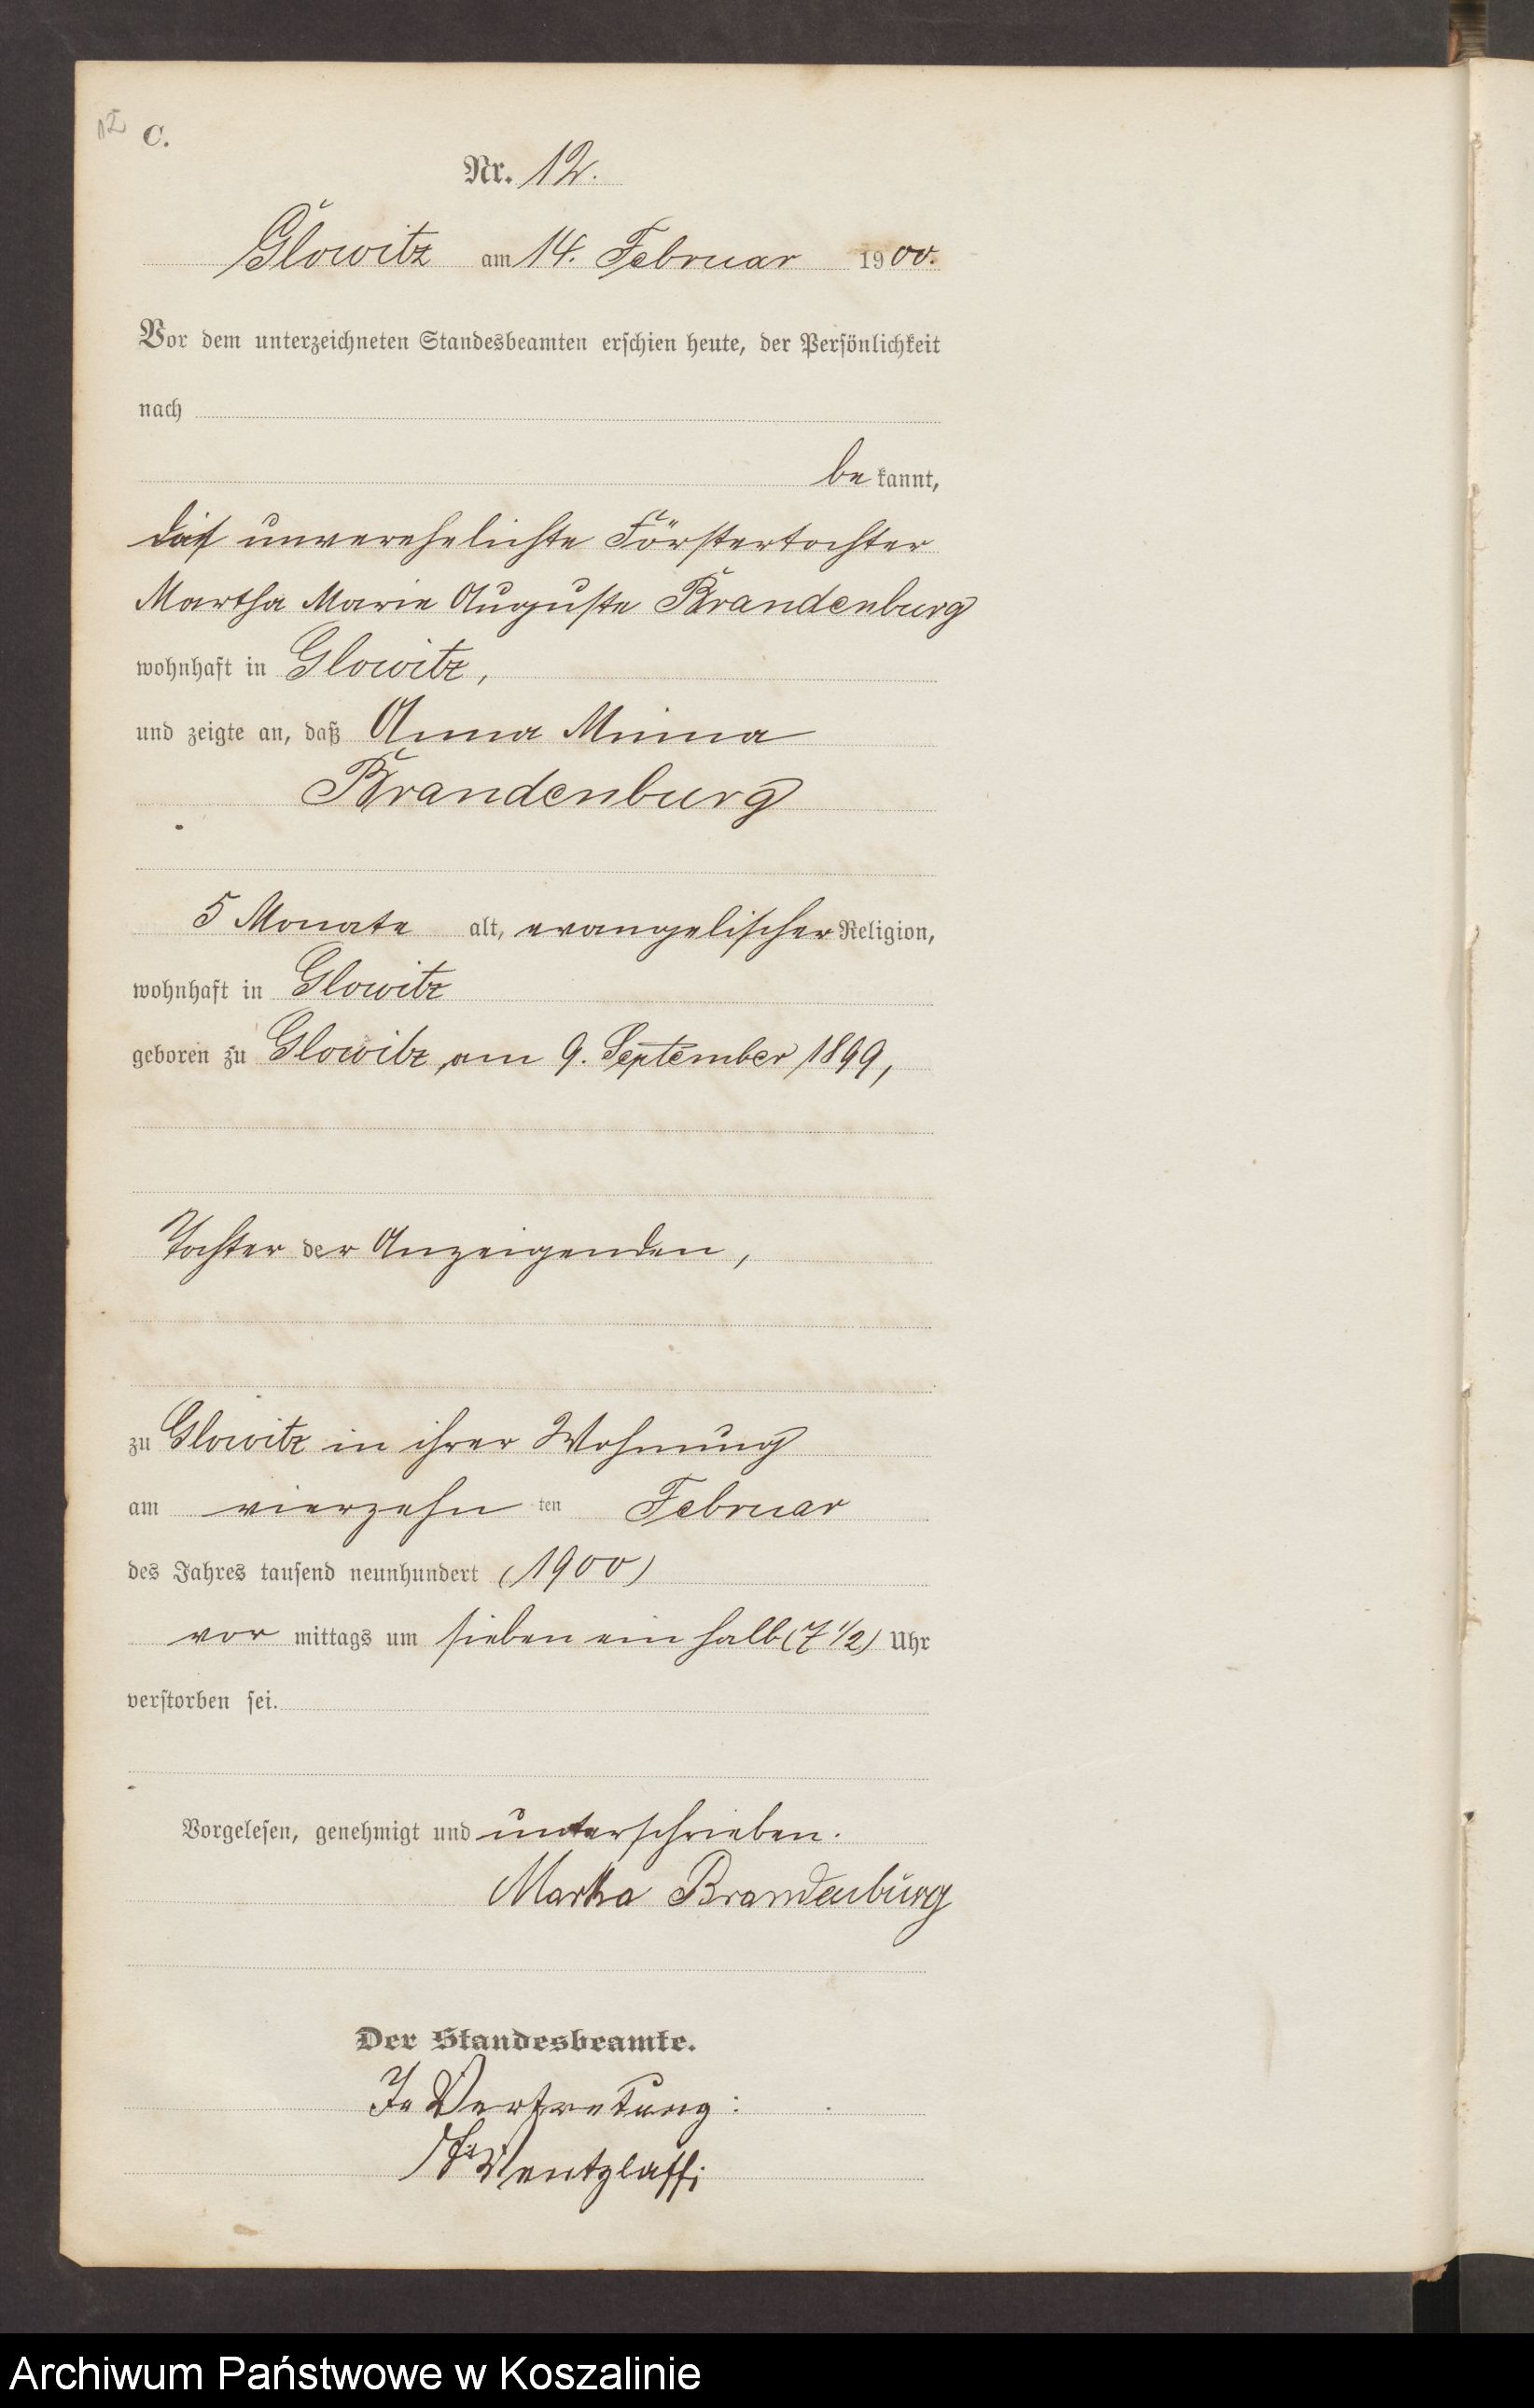 C.
Nr. 12.
Glowitz am 14. Februar 1900.
Vor dem unterzeichneten Standesbeamten erschien heute, der Persönlichkeit
nach
be kannt,
die unverehelichte Förstertochter
Martha Marie Auguste Brandenburg
wohnhaft in Glowitz,
und zeigte an, daß Anna Minna
Brandenburg
5 Monate alt, evangelischer Religion,
wohnhaft in Glowitz
geboren zu Glowitz, am 9. September 1899,
Tochter der Anzeigenden,
zu Glowitz in ihrer Wohnung
am vierzehn ten Februar
des Jahres tausend neunhundert (1900)
vor mittags um sieben ein halb (7 1/2) Uhr
verstorben sei.
Vorgelesen, genehmigt und unterschrieben.
Martha Brandenburg
Der Standesbeamte.
In Vertretung:
Wentzlaff
Archiwum Państwowe w Koszalinie